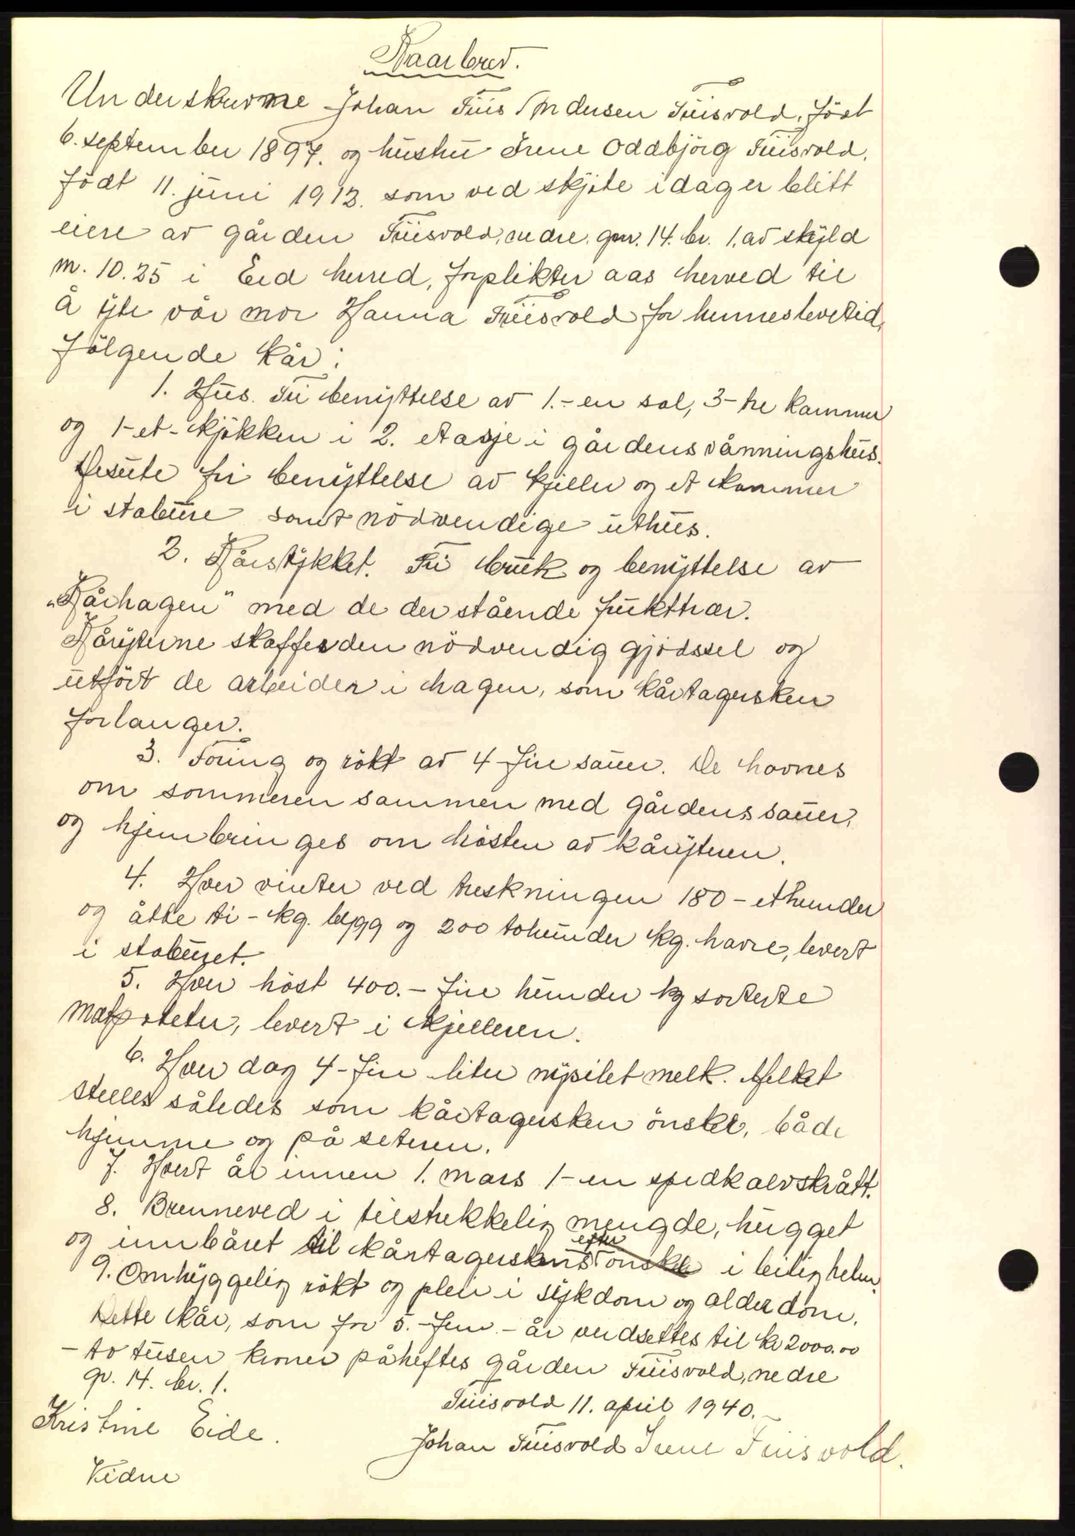 Kaarbrev.
Underskrevne Johan Friis Andersen Friisvold, födt
6. september 1897. og hustru Irene Oddbjörg Friisvold,
födt 11. juni 1913. som ved skjöte idag er blitt
eiere av gården Friisvold, nedre, gnr. 14. br. 1. av skyld
m. 10.25 i Eid herred, forplikter oss herved til
å yte vår mor Hanna Friisvold for hennes levetid,
fölgende kår:
1. Hus. Fri benyttelse av 1.- en sal, 3- tre kammer
og 1- et- kjökken i 2. etasje i gårdens våningshus.
Desuten fri benyttelse av kjeller og et kammer
i stabure samt nödvendige uthus.
2. Kårstykket. Fri bruk og benyttelse av
"Kårhagen" med de der stående frukttrær.
Kåryterne skaffer den nödvendig gjödssel og
utfört de arbeider i hagen, som kårtagersken
forlanger.
3. Foring og rökt av 4 fire sauer. De havnes
om sommeren sammen med gårdens sauer,
og hjembringes om hösten av kåryteren.
4. Hver vinter ved treskningen 180 - et hundre
og åtte ti - kg. bygg og 200 tohundre kg. havre, levert
i staburet.
5. Hver höst 400.- fire hundre kg sorterte
matpoteter, levert i kjelleren.
6. Hver dag 4- fire liter nysilet melk. Melket
stelles således som kårtagersken önsker, både
hjemme og på seteren.
7. Hvert år innen 1. mars 1- en spedkalvskrått.
8. Brenneved i tilstrekkelig mengde, hugget
og innbåret til kårtagerskens efter önske i leiligheten.
9. Omhyggelig rökt og pleie i sykdom og alderdom.
Dette kår, som for 5.- fem - år verdsettes til kr 2000.00
- to tusen kroner påheftes gården Friisvold, nedre
gr. 14. br. 1.
Friisvold 11. april 1940.
Kristine Eide.
Johan Friisvold Irene Friisvold.
Vidne